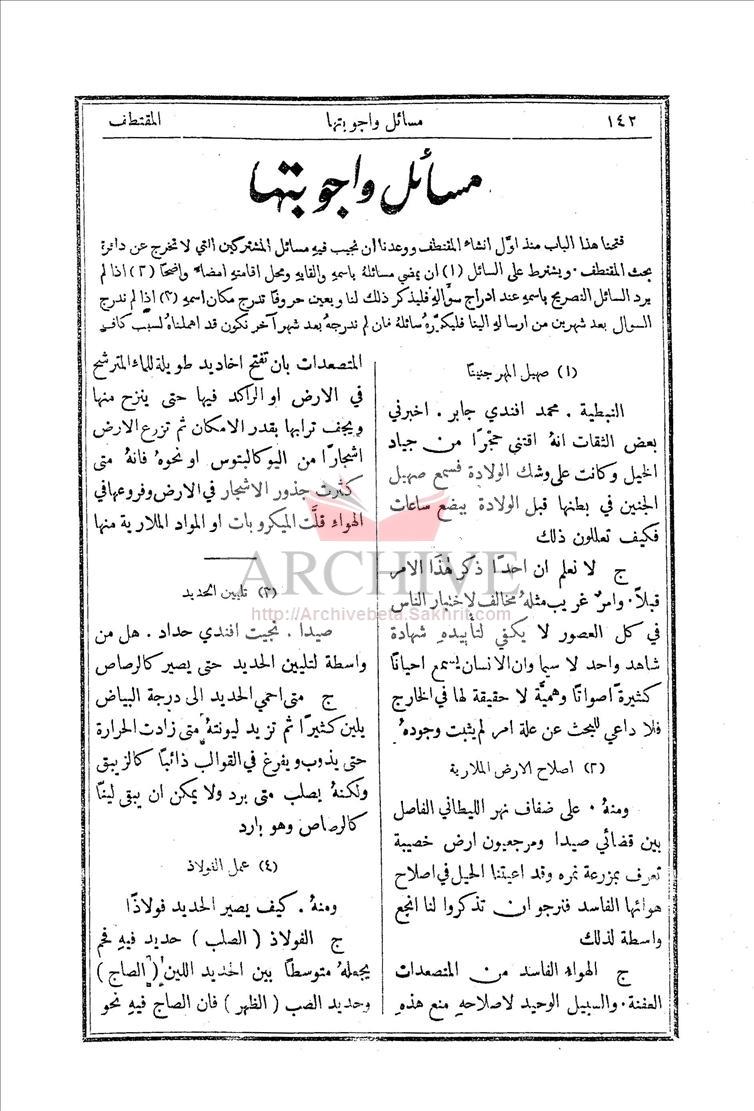 ١٤٢ مسائل واجوبتها المقتطف
مسائل واجوبتها
فتحنا هذا الباب منذ اوّل انشاء المقتطف ووعدنا ان نجيب فيهِ مسائل المشتركين التي لا تخرج عن دائرة
بحث المقتطف . ويشترط على السائل (١) ان يمضي مسائلهُ باسمهِ والقابهِ ومحل اقامتهِ امضاءً واضحًا (٢) اذا لم
يرد السائل التصريح باسمهِ عند ادراج سؤالهِ فليذكر ذلك لنا ويعين حروفًا تدرج مكان اسمهِ (٣) اذا لم ندرج
السوال بعد شهرين من ارسالهِ الينا فليكرّرهُ سائلهُ فان لم ندرجهُ بعد شهر آخر نكون قد اهملناهُ لسبب كافٍ
(١) صهيل المهر جنينًا
النبطية . محمد افندي جابر . اخبرني
بعض الثقات انهُ اقتنى حجرًا من جياد
الخيل وكانت على وشك الولادة فسمع صهيل
الجنين في بطنها قبل الولادة ببضع ساعات
فكيف تعللون ذلك
ج لا نعلم ان احدًا ذكر هٰذَا الامر
قبلاً . وامرٌ غريب مثلهُ مخالف لاختبار الناس
في كل العصور لا يكفي لتأييدهِ شهادة
شاهد واحد لا سيما وان الانسان يسمع احيانًا
كثيرة اصواتًا وهميَّة لا حقيقة لها في الخارج
فلا داعي للبحث عن علة امر لم يثبت وجودهُ
(٢) اصلاح الارض الملارية
ومنهُ . على ضفاف نهر الليطاني الفاصل
بين قضائي صيدا ومرجعيون ارض خصيبة
تعرف بمزرعة نمره وقد اعيتنا الحيل في اصلاح
هوائها الفاسد فنرجو ان تذكروا لنا انجع
واسطة لذلك
ج الهواء الفاسد من المتصعدات
العفنة . والسبيل الوحيد لاصلاحهِ منع هذهِ
المتصعدات بان تفتح اخاديد طويلة للماء المترشح
في الارض او الراكد فيها حتى ينزح منها
ويجف ترابها بقدر الامكان ثم تزرع الارض
اشجارًا من اليوكالبتوس او نحوهُ فانهُ متى
كثرت جذور الاشجار في الارض وفروعها في
الهواء قلَّت الميكروبات او المواد الملارية منها
(٣) تليين الحديد
صيدا . نجيب افندي حداد . هل من
واسطة لتليين الحديد حتى يصير كالرصاص
ج متى احمي الحديد الى درجة البياض
يلين كثيرًا ثم تزيد ليونتهُ متى زادت الحرارة
حتى يذوب ويفرغ في القوالب ذائبًا كالزيبق
ولكنهُ يصلب متى برد ولا يمكن ان يبقى لينًا
كالرصاص وهو بارد
(٤) عمل الفولاذ
ومنهُ . كيف يصير الحديد فولاذًا
ج الفولاذ ( الصلب ) حديد فيهِ فحم
يجعلهُ متوسطًا بين الحديد اللين ( الصاج )
وحديد الصب ( الظهر ) فان الصاج فيهِ نحو
ARCHIVE
http://Archivebeta.Sakhrit.com